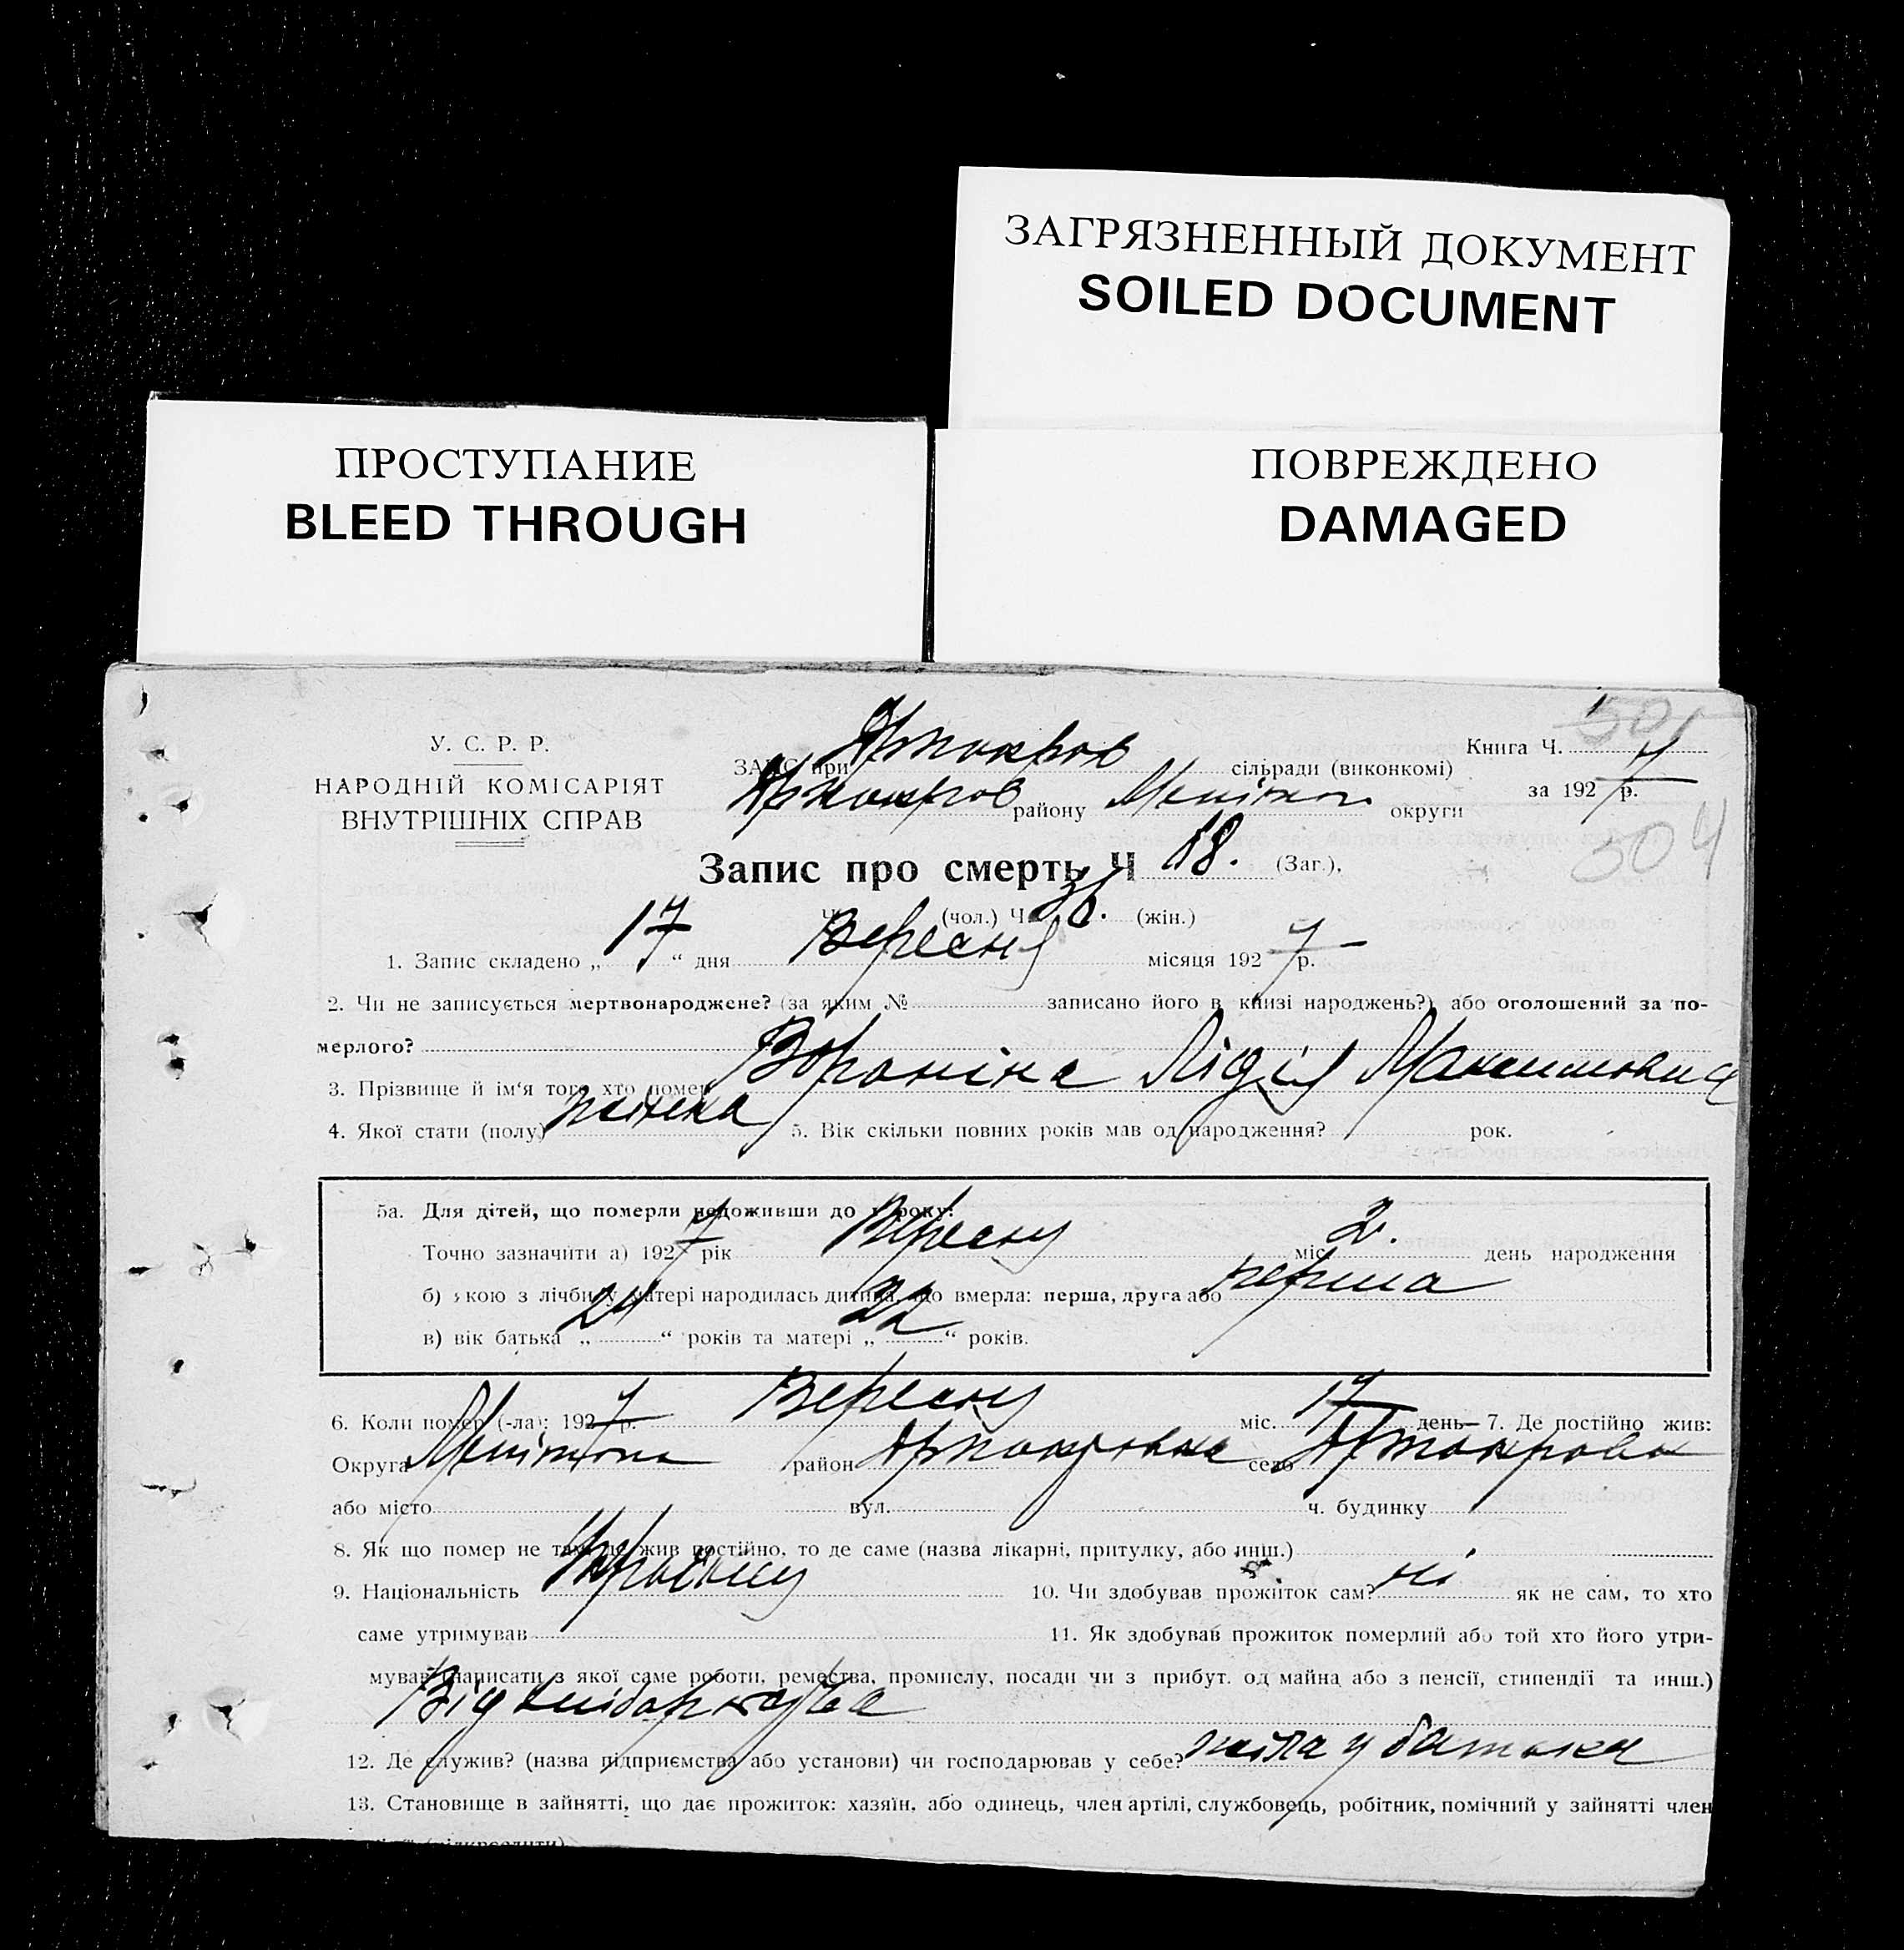 ЗАГРЯЗНЕННЫЙ ДОКУМЕНТ
SOILED DOCUMENT
ПРОСТУПАНИЕ
BLEED THROUGH
ПОВРЕЖДЕНО
DAMAGED
У. С. Р. Р.
НАРОДНІЙ КОМІСАРІЯТ
ВНУТРІШНІХ СПРАВ
501
Книга Ч.
ЗАГС при сільради (виконкомі)
за 1927 р.
району округи
504
Запис про смерть Ч 18. (Заг.),
Ч (чол.) Ч. (жін.)
1. Запис складено „ 17 “ дня Вересня місяця 1927 р.
2. Чи не записується мертвонароджене? (за яким № записано його в книзі народжень?) або оголошений за по-
мерлого?
3. Прізвище й ім'я того хто помер Вороніна Лідія Максимовна
4. Якої стати (полу) жіноча 5. Вік скільки повних років мав од народження? рок.
5а. Для дітей, що померли недоживши до 1 року:
Точно зазначити а) 1927 рік Вересня міс. 2. день народження
б) якою з лічби у матері народилась дитина, що вмерла: перша, друга або перша
в) вік батька „ 24 “ років та матері „ 22 “ років.
6. Коли помер (-ла): 1927 р. Вересня міс. 17 день– 7. Де постійно жив:
Округа район село
або місто вул. ч. будинку
8. Як що помер не там, де жив постійно, то де саме (назва лікарні, притулку, або инш.)
9. Національність 10. Чи здобував прожиток сам? ні як не сам, то хто
саме утримував 11. Як здобував прожиток померлий або той хто його утри-
мував (написати з якої саме роботи, ремества, промислу, посади чи з прибут. од майна або з пенсії, стипендії та инш.)
Від хліборобства
12. Де служив? (назва підприємства або установи) чи господарював у себе? жила у батька
13. Становище в зайнятті, що дає прожиток: хазяїн, або одинець, член артілі, службовець, робітник, помічний у зайнятті член